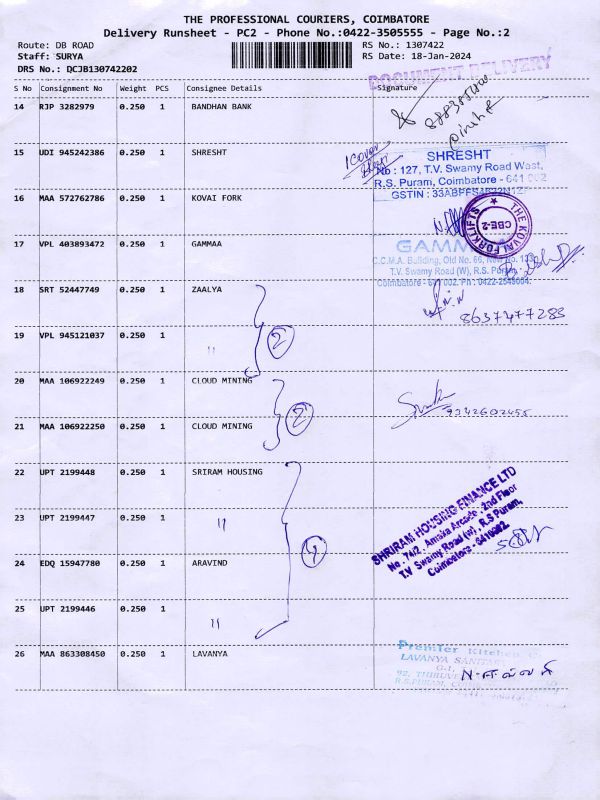 THE PROFESSIONAL COURIERS, COIMBATORE
Delivery Runsheet - PC2 - Phone No.:0422-3505555 - Page No.:2
Route: DB ROAD RS No.: 1307422
Staff: SURYA RS Date: 18-Jan-2024
DRS No.: DCJB130742202
DOCUMENT DELIVERY
S No Consignment No Weight PCS Consignee Details Signature
14 RJP 3282979 0.250 1 BANDHAN BANK
15 UDI 945242386 0.250 1 SHRESHT
1 cover
SHRESHT
No : 127, T.V. Swamy Road West,
R.S. Puram, Coimbatore - 641 002
16 MAA 572762786 0.250 1 KOVAI FORK
THE KOVAI FORKLIFTS
CBE-2
17 VPL 403893472 0.250 1 GAMMAA
C.C.M.A. Building, Old No. 66, New No. 123,
T.V. Swamy Road (W), R.S. Puram,
18 SRT 52447749 0.250 1 ZAALYA
8637477283
19 VPL 945121037 0.250 1 "
2
20 MAA 106922249 0.250 1 CLOUD MINING
2
21 MAA 106922250 0.250 1 CLOUD MINING
22 UPT 2199448 0.250 1 SRIRAM HOUSING
SHRIRAM HOUSING FINANCE LTD
No. 74/2, Amsha Arcade, 2nd Floor
T.V Swamy Road (w), R.S Puram,
Coimbatore - 641002.
23 UPT 2199447 0.250 1 "
4
24 EDQ 15947780 0.250 1 ARAVIND
25 UPT 2199446 0.250 1 "
26 MAA 863308450 0.250 1 LAVANYA
Premier Kitchen
LAVANYA